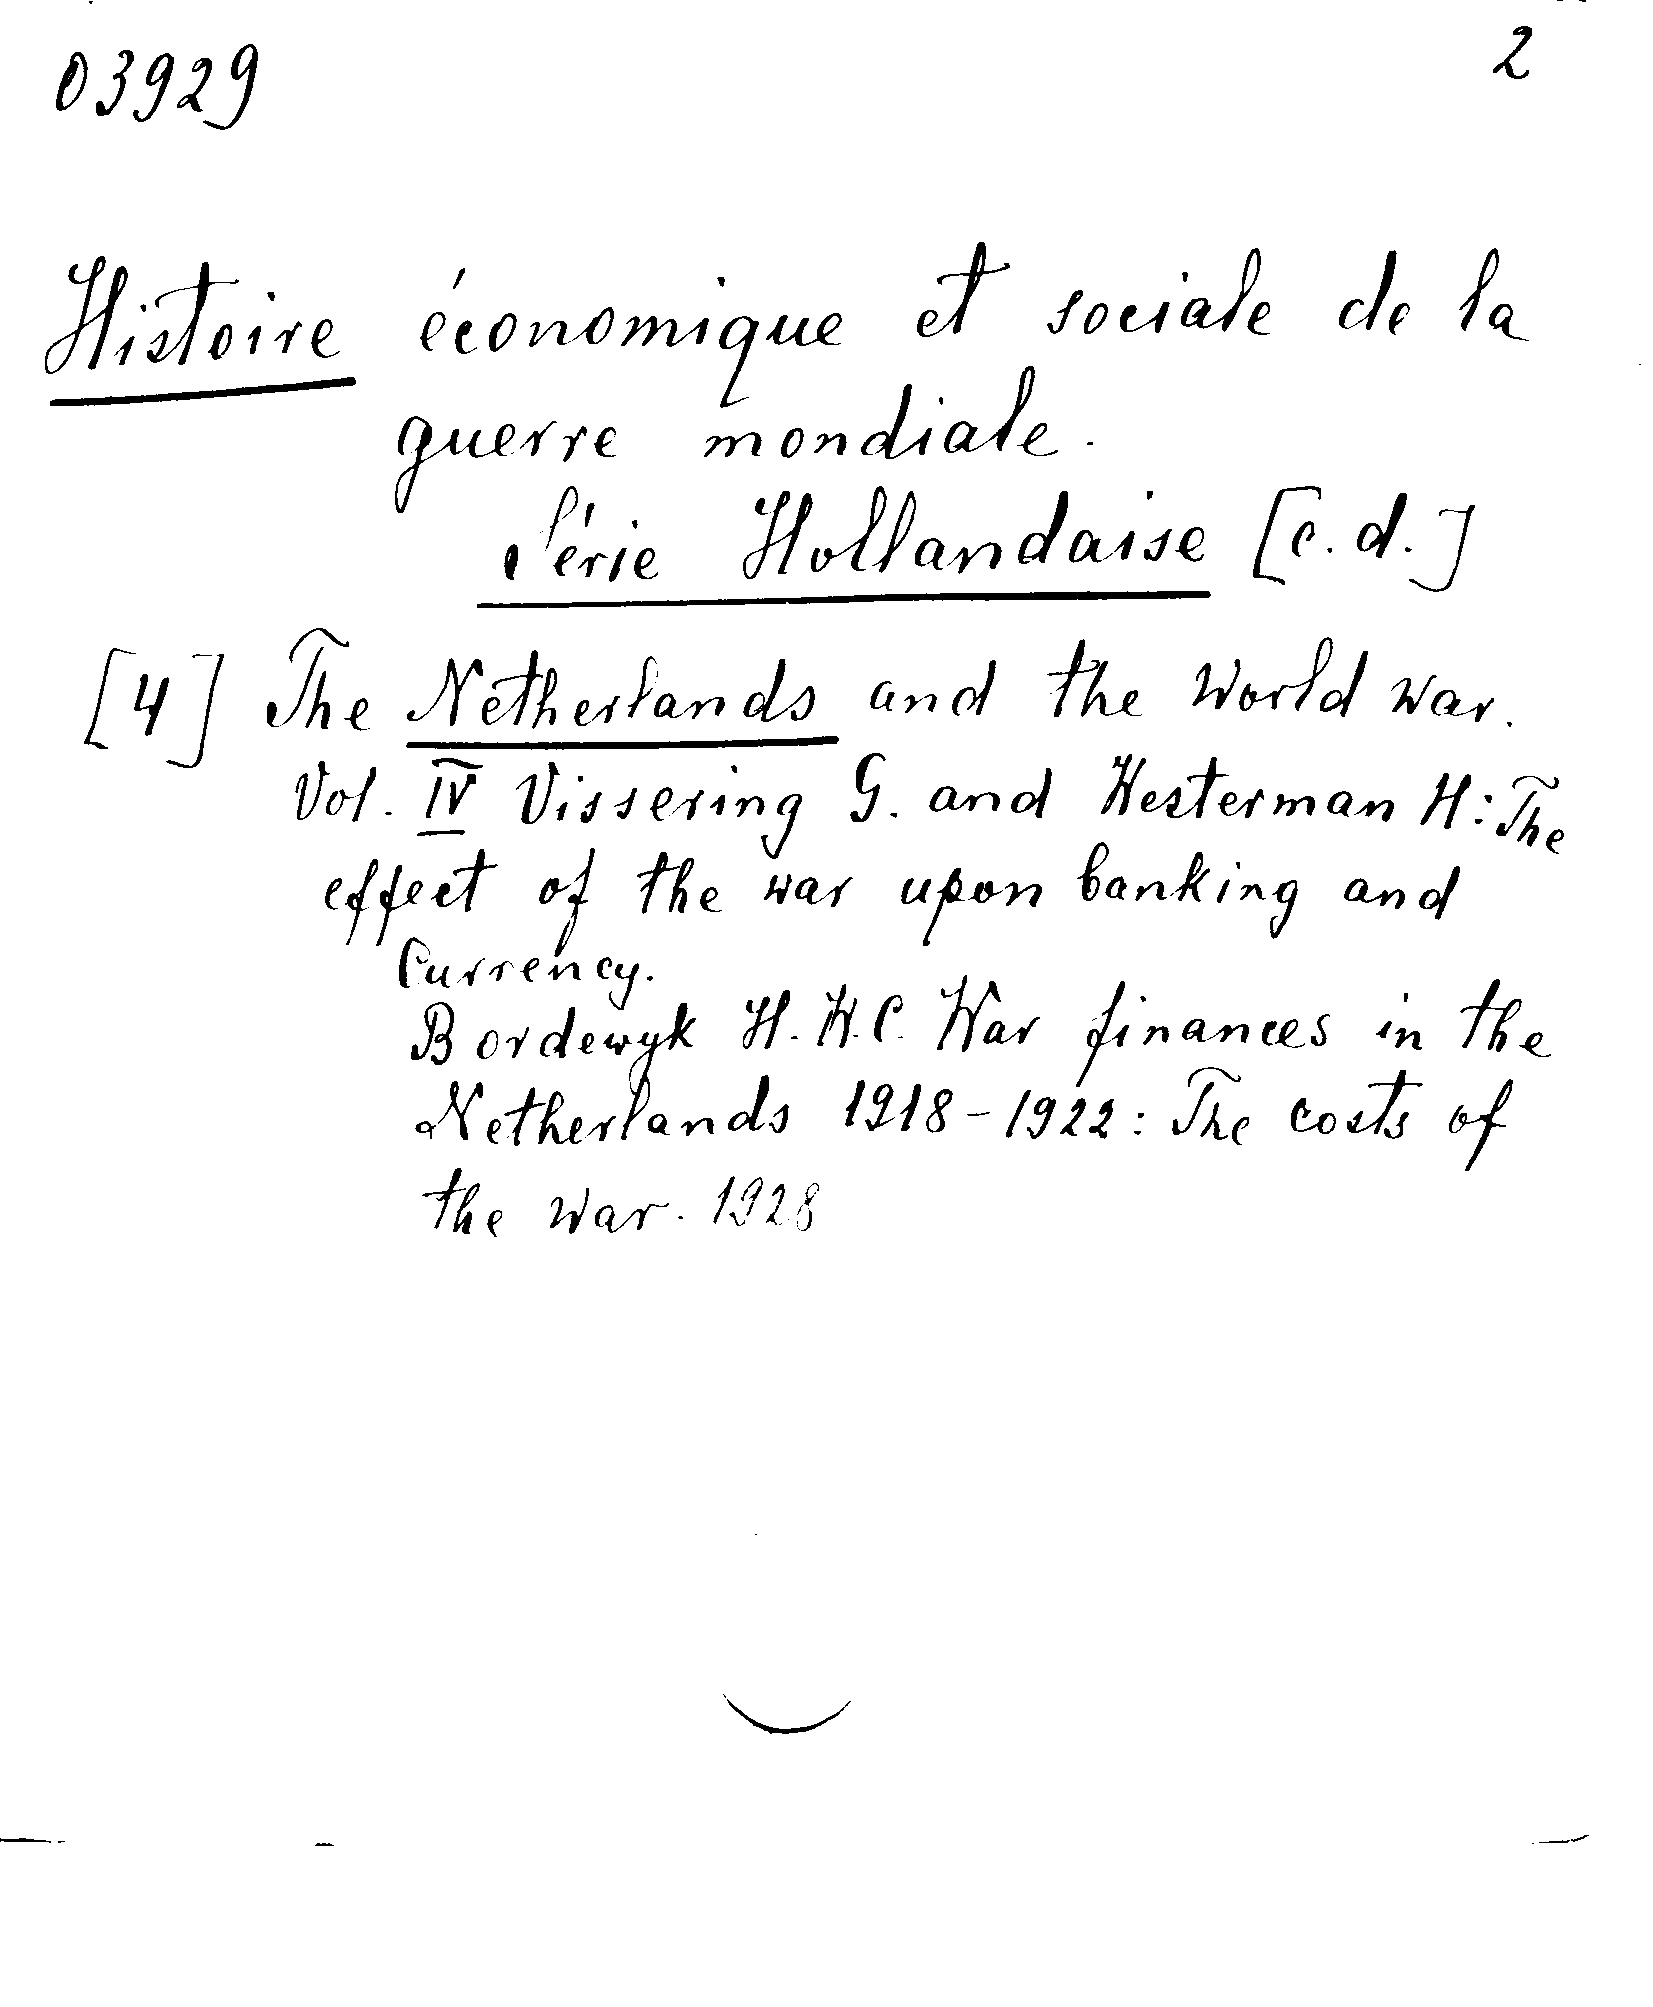 03929
2
Histoire économique et sociale de la
guerre mondiale.
Série Hollandaise [c.d.]
[4] The Netherlands and the World War.
Vol. IV Vissering G. and Westerman H: The
effect of the war upon banking and
Currency.
Bordewyk H.W.C. War finances in the
Netherlands 1918-1922: The costs of
the war. 1928